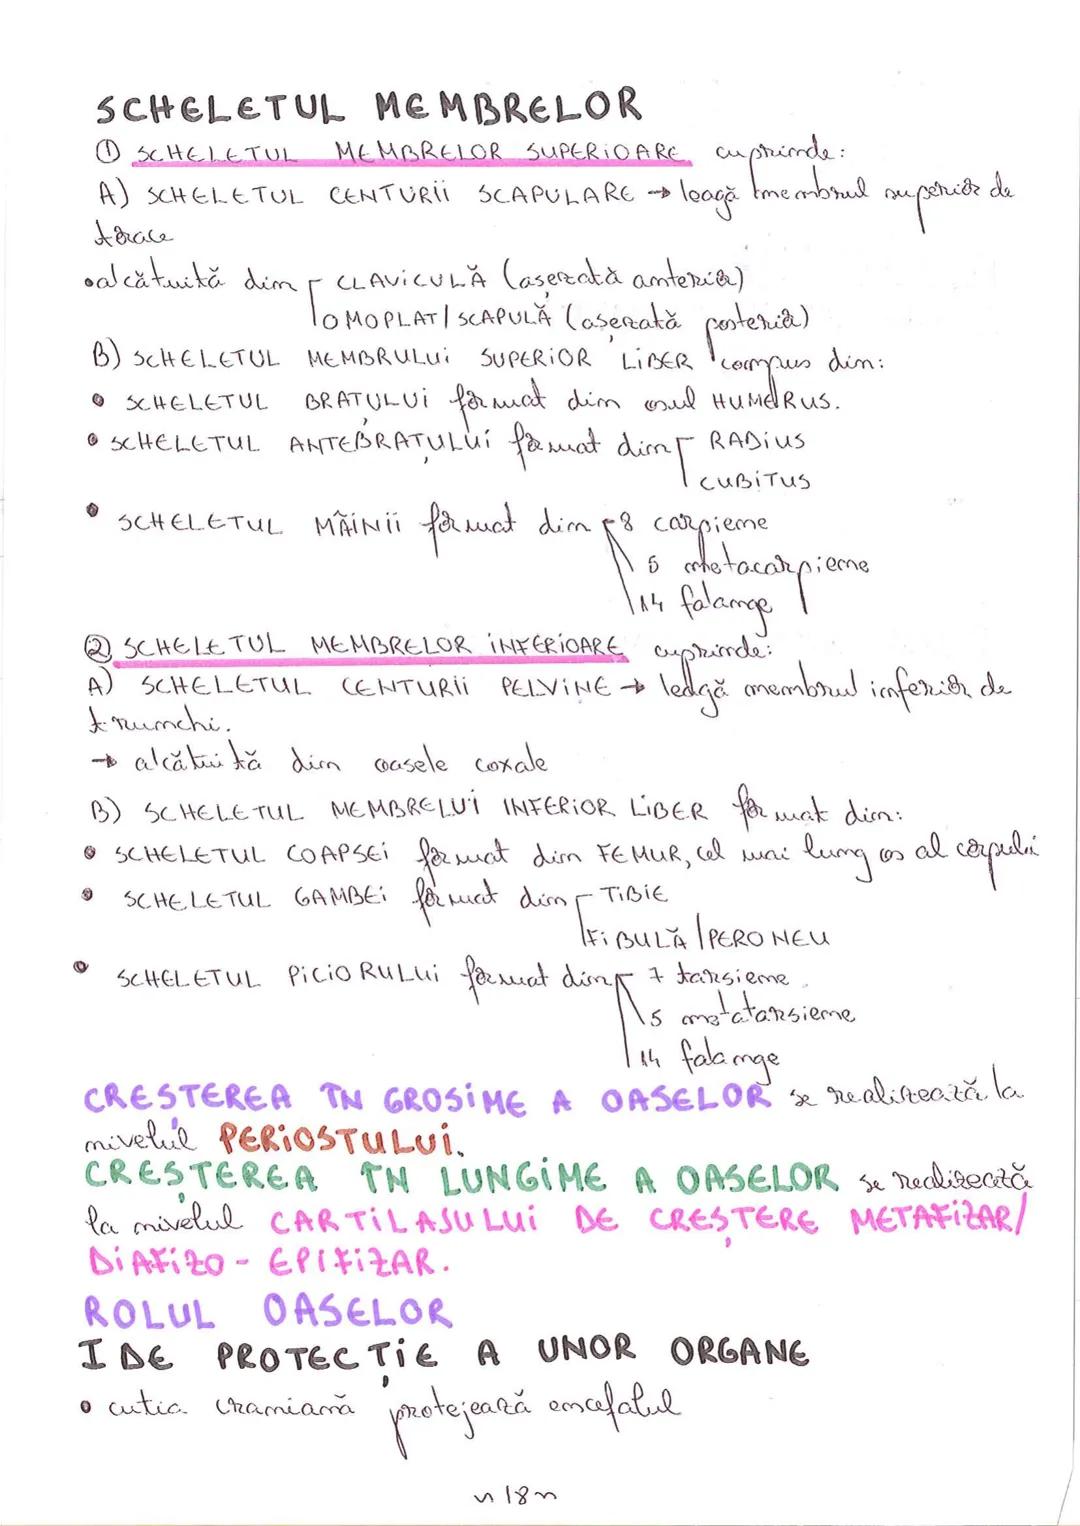 SCHELETUL MEMBRELOR
① SCHELETUL MEMBRELOR SUPERIOARE cuprinde:
A) SCHELETUL CENTURII SCAPULARE → leagă membrul superior de
torace
• alcătuită din CLAVICULĂ (așezată anterior)
OMOPLAT/SCAPULĂ (așezată posterior)
B) SCHELETUL MEMBRULUI SUPERIOR LIBER compus din:
• SCHELETUL BRAȚULUI format din osul HUMERUS.
• SCHELETUL ANTEBRAȚULUI format din RADIUS
CUBITUS
• SCHELETUL MÂINII format din 8 carpiene
5 metacarpiene
14 falange
② SCHELETUL MEMBRELOR INFERIOARE cuprinde:
A) SCHELETUL CENTURII PELVINE → leagă membrul inferior de
trunchi.
→ alcătuită din oasele coxale
B) SCHELETUL MEMBRELUI INFERIOR LIBER format din:
• SCHELETUL COAPSEI format din FEMUR, cel mai lung os al corpului
• SCHELETUL GAMBEI format din TIBIE
FIBULĂ/PERONEU
• SCHELETUL PICIORULUI format din 7 tarsiene
5 metatarsiene
14 falange
CREȘTEREA ÎN GROSIME A OASELOR se realizează la
nivelul PERIOSTULUI.
CREȘTEREA ÎN LUNGIME A OASELOR se realizează
la nivelul CARTILAJULUI DE CREȘTERE METAFIZAR/
DIAFIZO-EPIFIZAR.
ROLUL OASELOR
I DE PROTECȚIE A UNOR ORGANE
• cutia craniană protejează encefalul
~18~